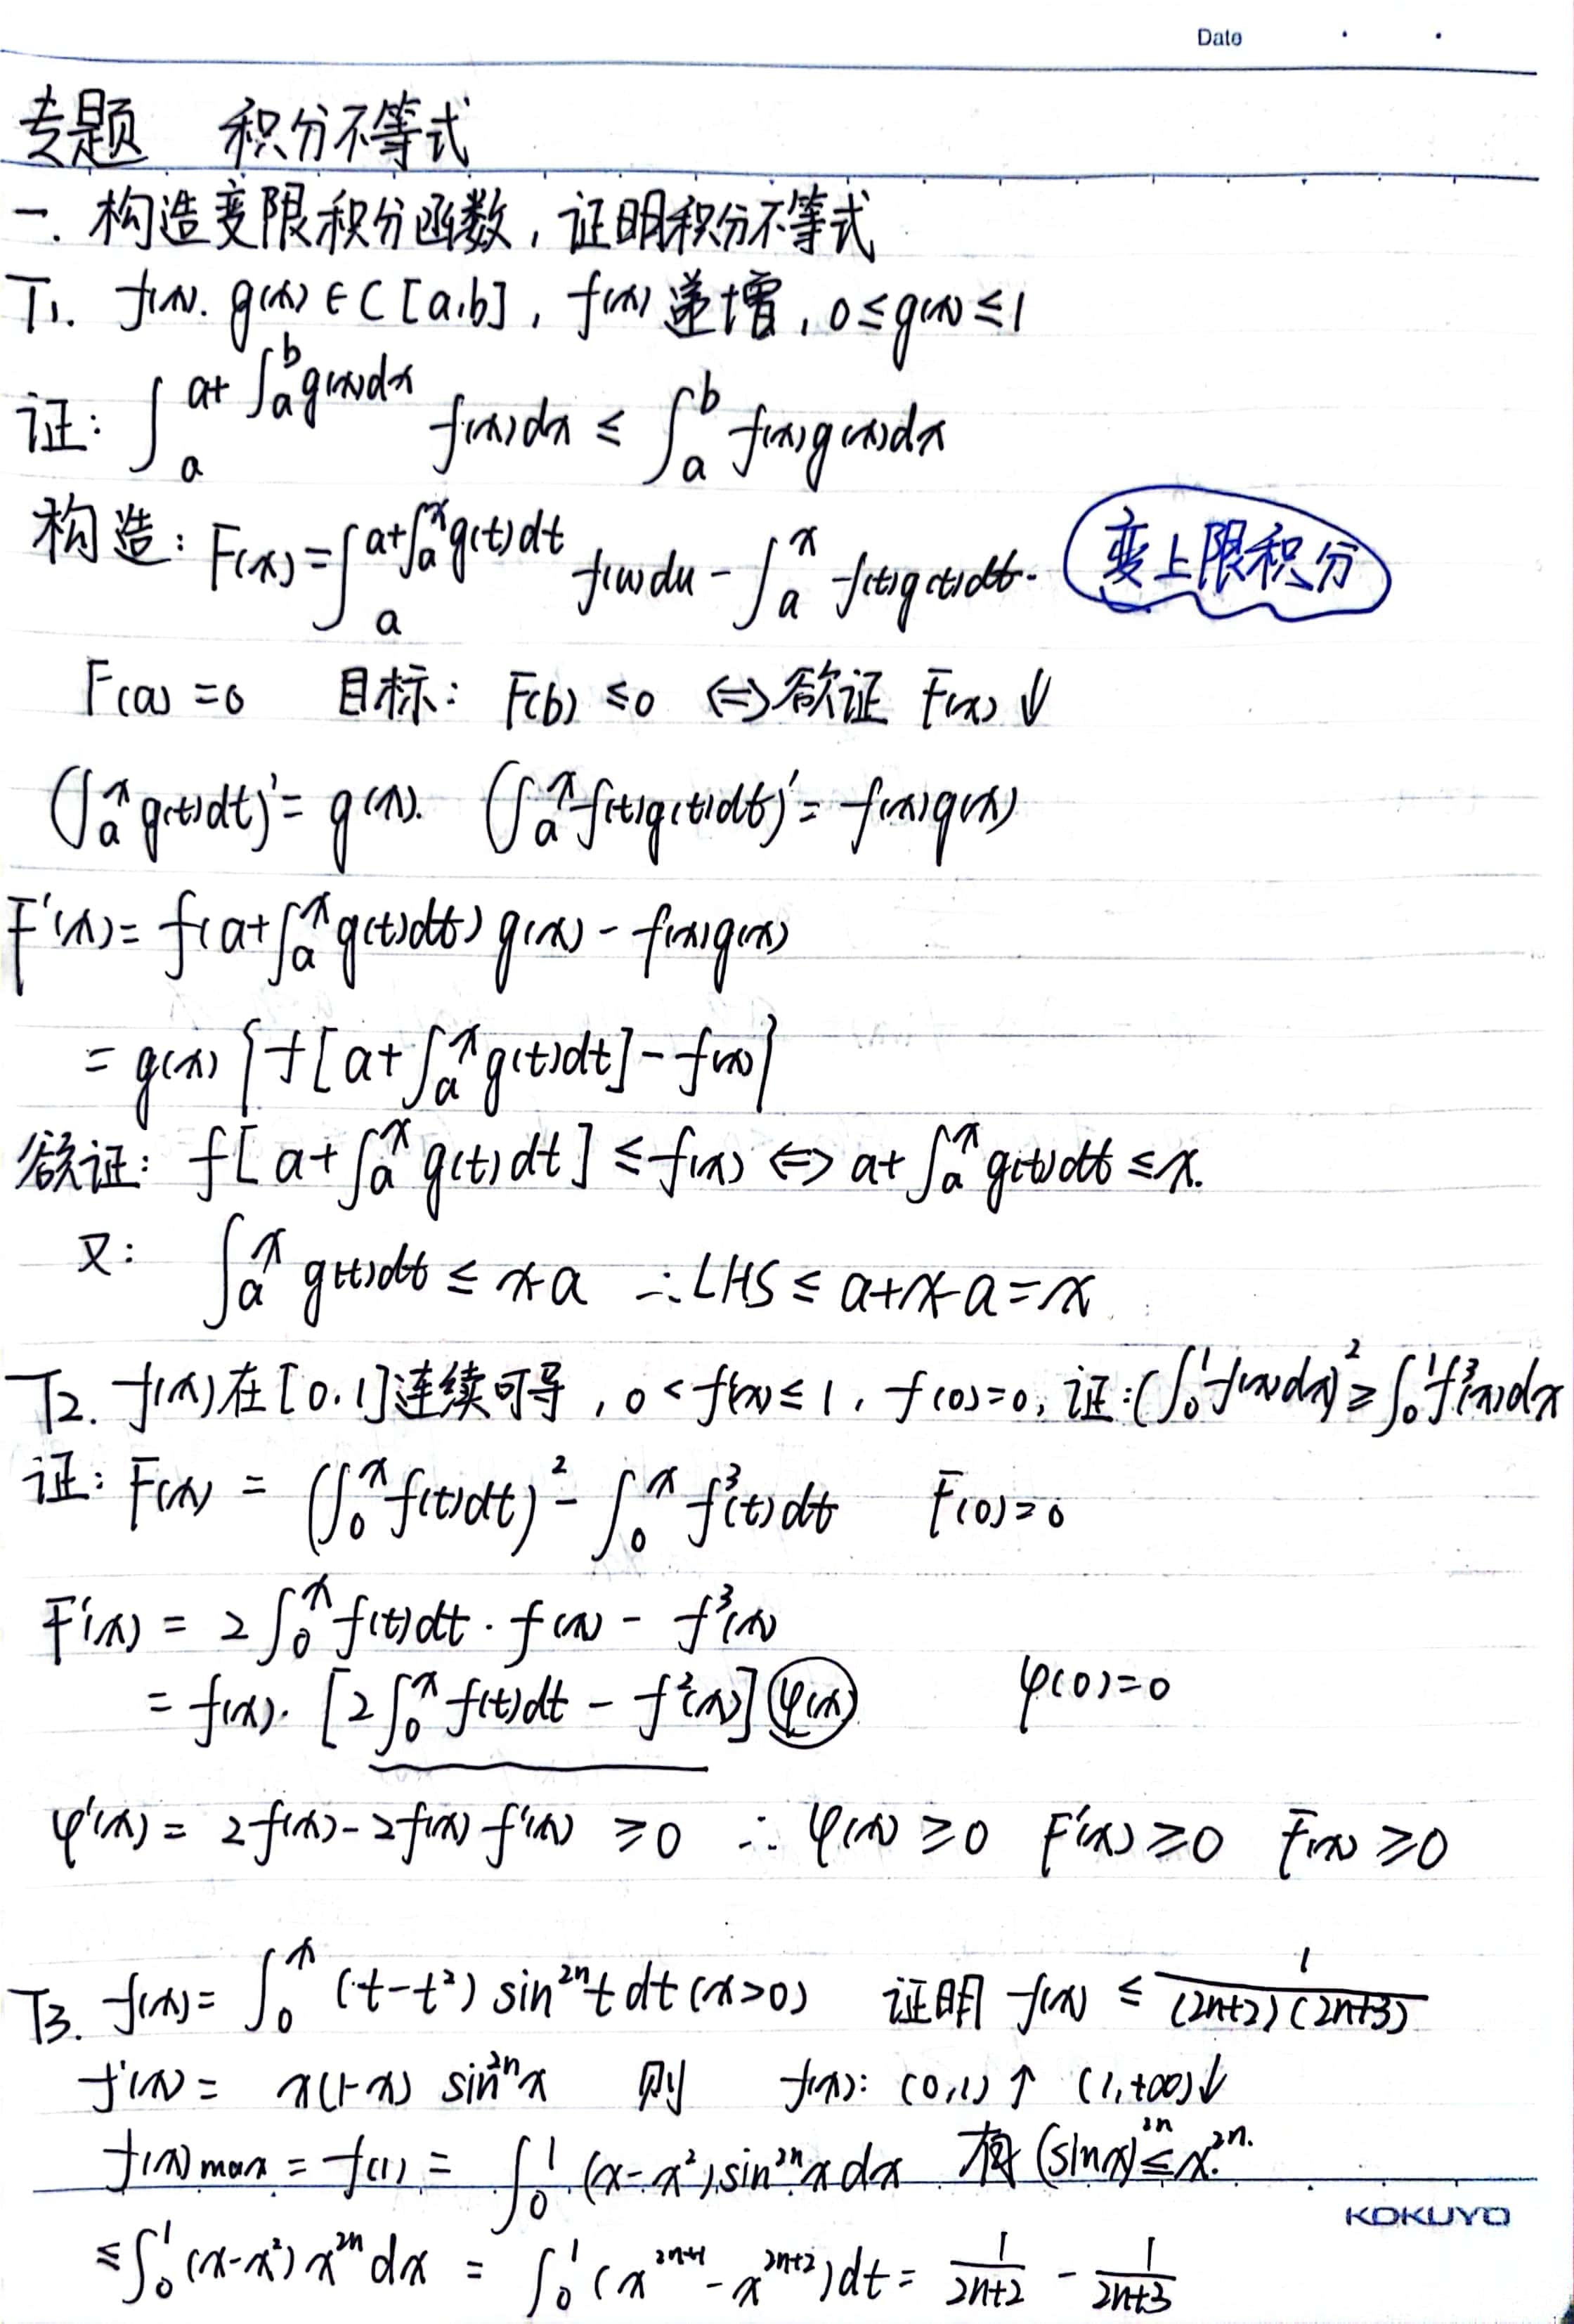 Date
专题 积分不等式
一. 构造变限积分函数, 证明积分不等式
T1. f(x). g(x) ∈ C [a,b], f(x) 递增, 0≤g(x)≤1
证: ∫_a^{a+∫_a^b g(x)dx} f(x)dx ≤ ∫_a^b f(x)g(x)dx
构造: F(x) = ∫_a^{a+∫_a^x g(t)dt} f(u)du - ∫_a^x f(t)g(t)dt. 变上限积分
F(a) = 0 目标: F(b) ≤0 <=> 欲证 F(x) ↓
(∫_a^x g(t)dt)' = g(x). (∫_a^x f(t)g(t)dt)' = f(x)g(x)
F'(x) = f(a+∫_a^x g(t)dt) g(x) - f(x)g(x)
= g(x) {f[a+∫_a^x g(t)dt] - f(x)}
欲证: f[a+∫_a^x g(t)dt] ≤ f(x) <=> a+∫_a^x g(t)dt ≤x.
又: ∫_a^x g(t)dt ≤ x-a ∴ LHS ≤ a+x-a=x
T2. f(x)在[0,1]连续可导, 0<f'(x)≤1, f(0)=0, 证:(∫_0^1 f(x)dx)^2 ≥ ∫_0^1 f^3(x)dx
证: F(x) = (∫_0^x f(t)dt)^2 - ∫_0^x f^3(t)dt F(0)=0
F'(x) = 2∫_0^x f(t)dt · f(x) - f^3(x)
= f(x). [2∫_0^x f(t)dt - f^2(x)] φ(x) φ(0)=0
φ'(x) = 2f(x)-2f(x)f'(x) ≥0 ∴ φ(x) ≥0 F'(x) ≥0 F(x) ≥0
T3. f(x) = ∫_0^x (t-t^2) sin^{2n}t dt (x>0) 证明 f(x) ≤ 1/((2n+2)(2n+3))
f'(x) = x(1-x) sin^{2n}x 则 f(x): (0,1)↑ (1,+∞)↓
f(x)max = f(1) = ∫_0^1 (x-x^2)sin^{2n}x dx 有 (sinx)^{2n} ≤ x^{2n}.
≤∫_0^1 (x-x^2) x^{2n} dx = ∫_0^1 (x^{2n+1} - x^{2n+2})dt = 1/(2n+2) - 1/(2n+3)
KOKUYO